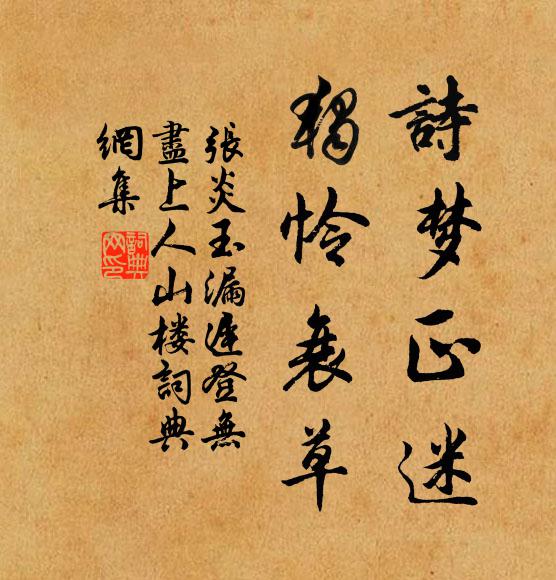 詩梦正迷
獨怜衰草
張炎玉漏遲登無
盡上人山楼詞典
網集
詞典网印